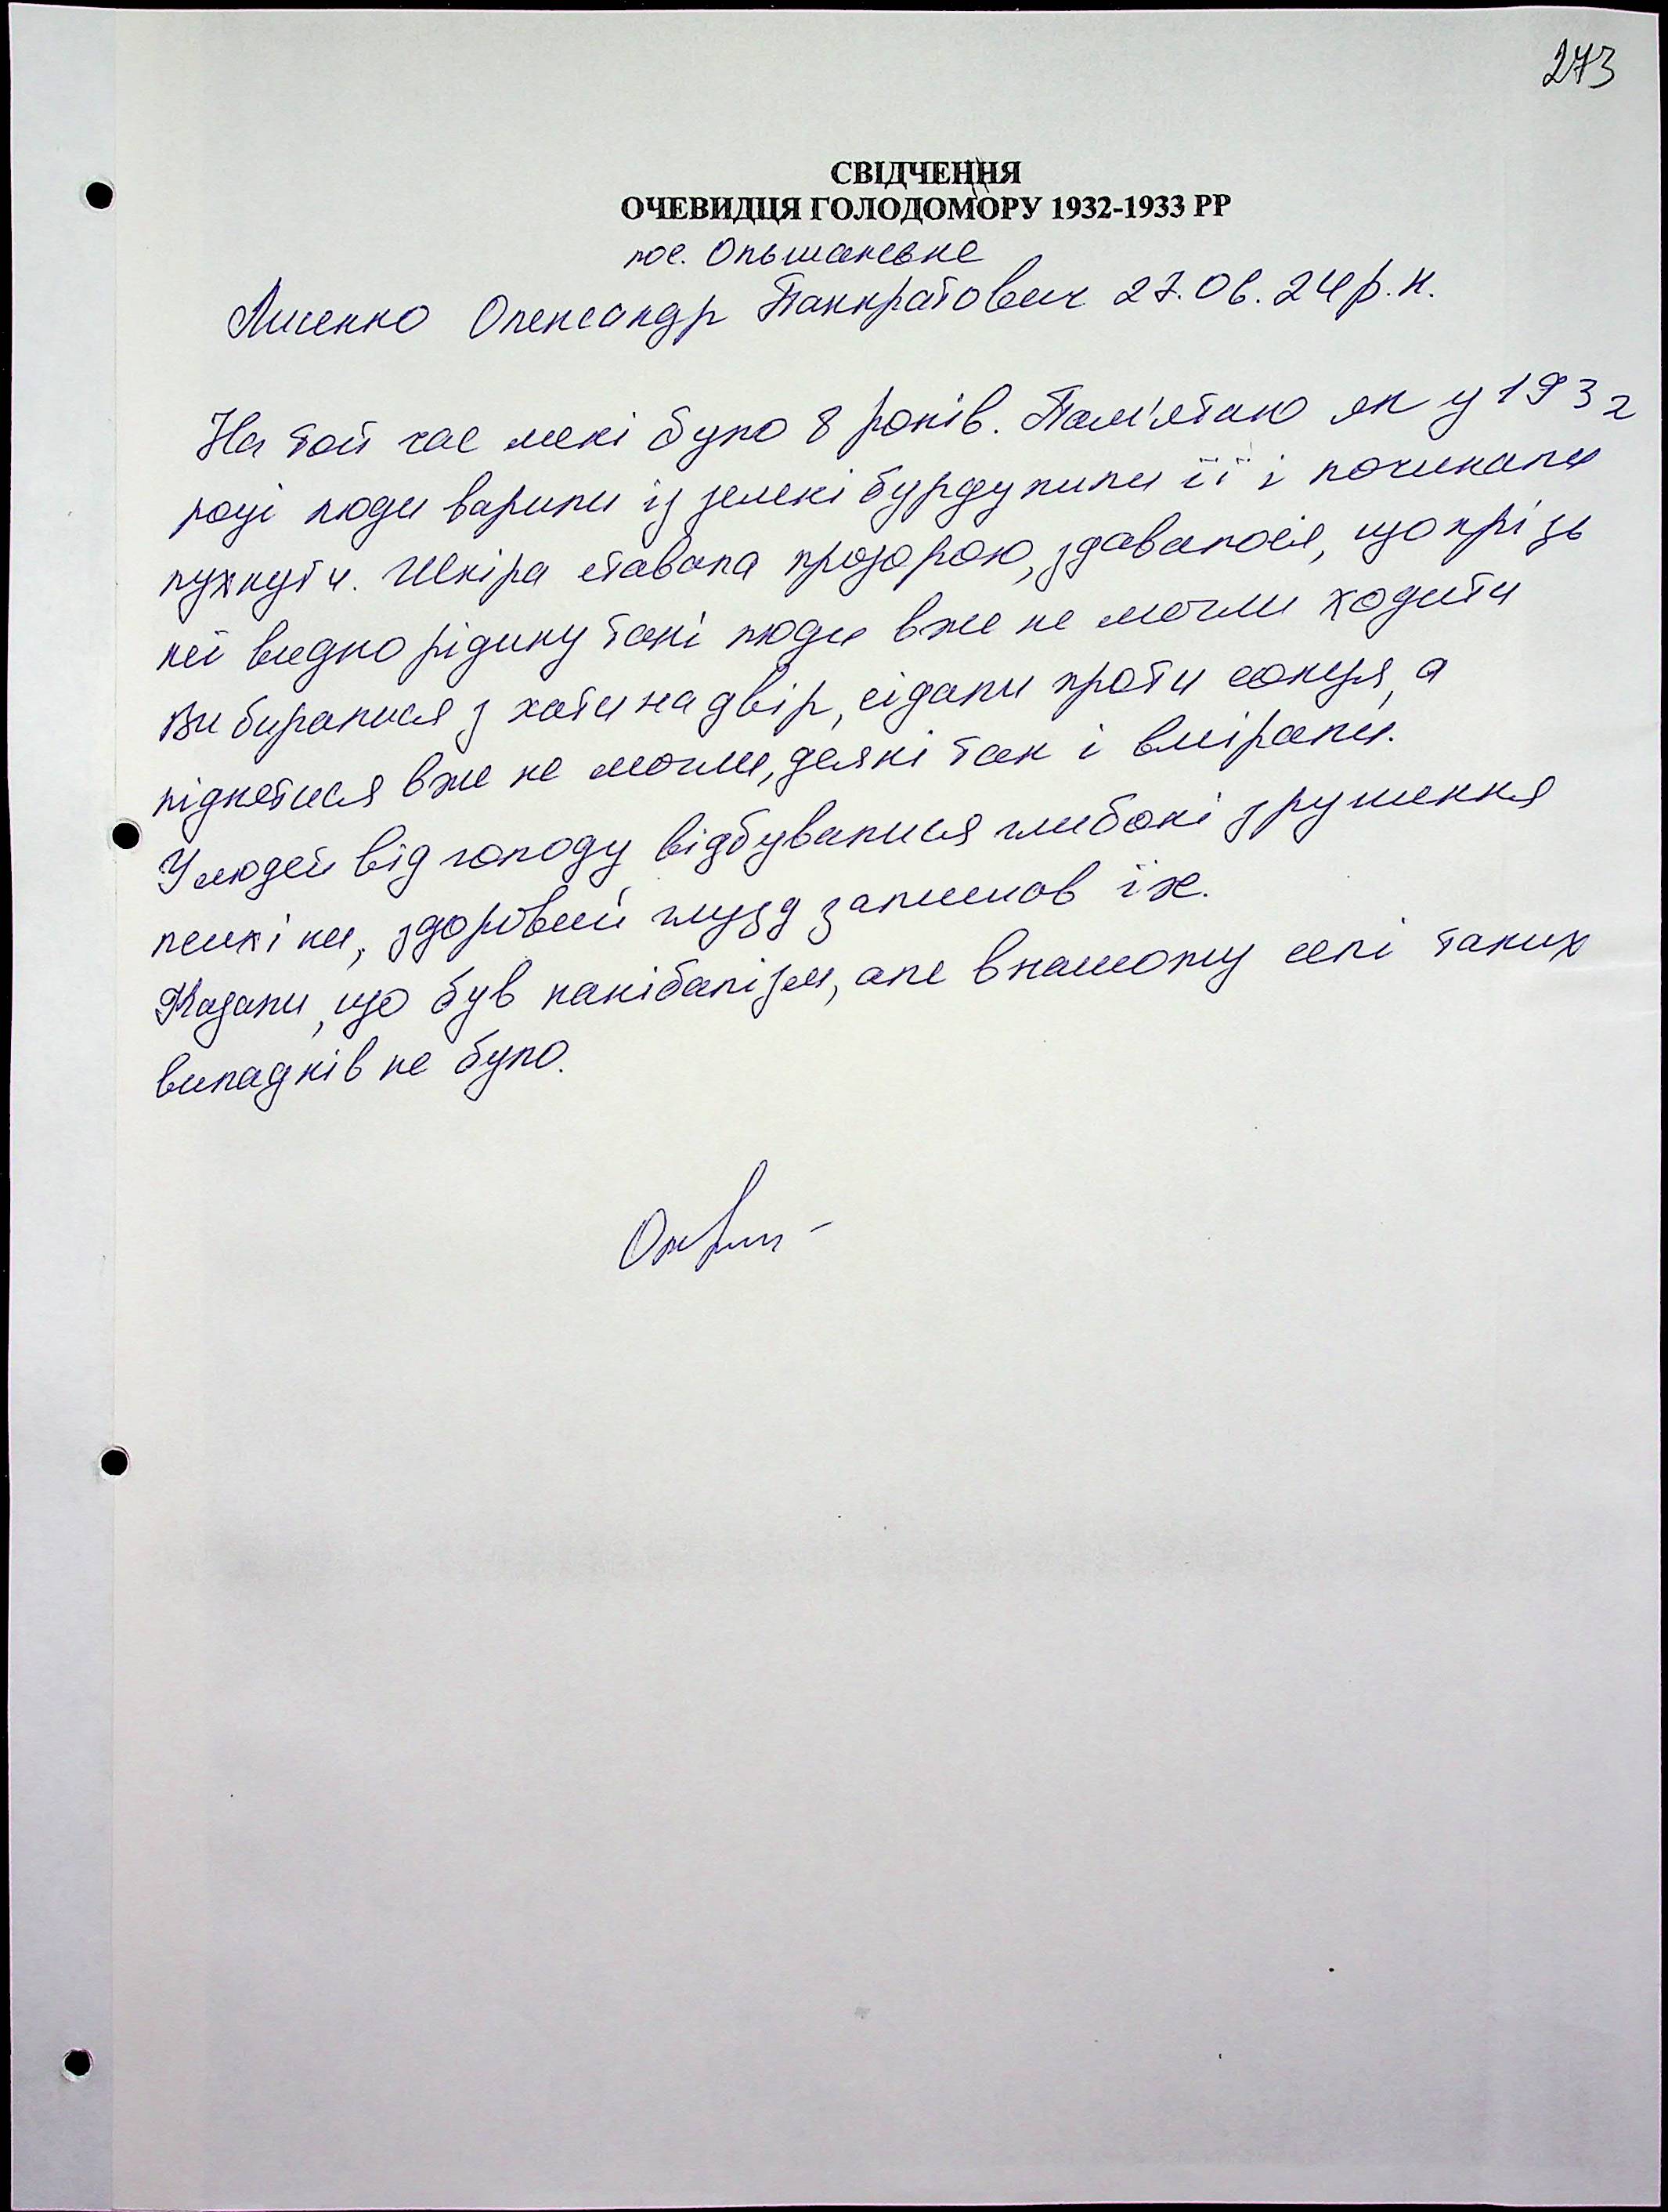 273
СВІДЧЕННЯ
ОЧЕВИДЦЯ ГОЛОДОМОРУ 1932-1933 РР
пос. Ольшанське
Лисенко Олександр Панкратович 27.06.24р.н.
На той час мені було 8 років. Пам'ятаю як у 1932
році люди варили із зелені бурду пили її і починали
пухнути. Шкіра ставала прозорою, здавалося, що крізь
неї видно рідину такі люди вже не могли ходити
Вибиралися з хати на двір, сідали проти сонця, а
піднятися вже не могли, деякі так і вмірали.
У людей від голоду відбувалися глибокі зрушення
психіки, здоровий глузд залишав їх.
Казали, що був канібалізм, але в нашому селі таких
випадків не було.